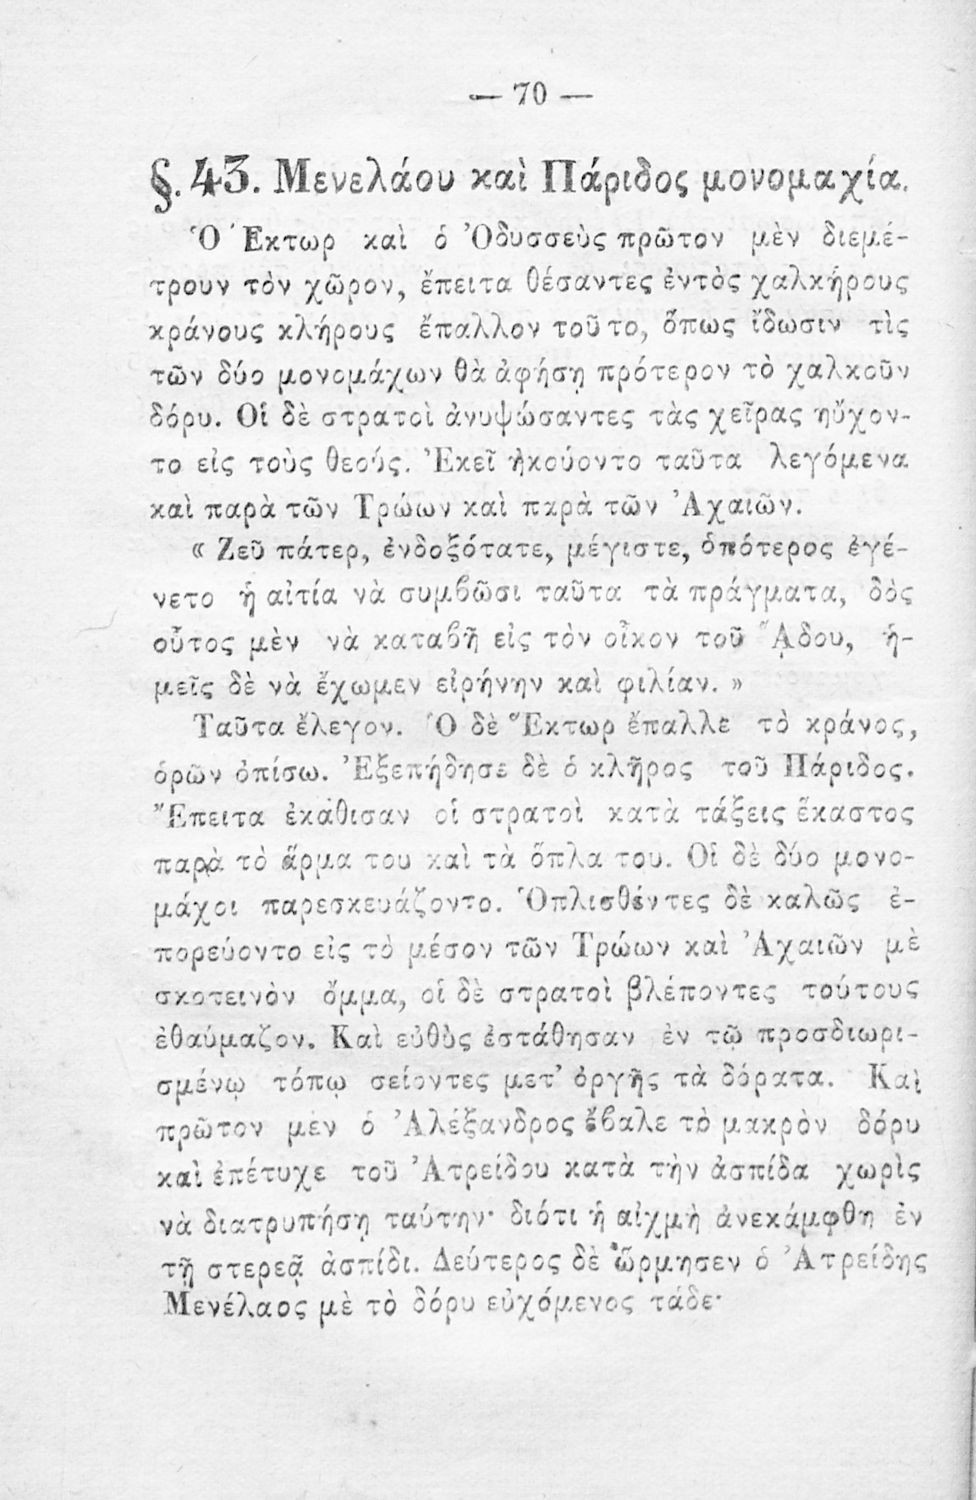 — 70 —
§. 43. Μενελάου καὶ Πάριδος μονομαχία.
Ὁ Ἕκτωρ καὶ ὁ Ὀδυσσεὺς πρῶτον μὲν διεμέ-
τρουν τὸν χῶρον, ἔπειτα θέσαντες ἐντὸς χαλκήρους
κράνους κλήρους ἔπαλλον τοῦτο, ὅπως ἴδωσιν τὶς
τῶν δύο μονομάχων θὰ ἀφήσῃ πρότερον τὸ χαλκοῦν
δόρυ. Οἱ δὲ στρατοὶ ἀνυψώσαντες τὰς χεῖρας ηὔχον-
το εἰς τοὺς θεούς. Ἐκεῖ ἠκούοντο ταῦτα λεγόμενα
καὶ παρὰ τῶν Τρώων καὶ παρὰ τῶν Ἀχαιῶν.
« Ζεῦ πάτερ, ἐνδοξότατε, μέγιστε, ὁπότερος ἐγέ-
νετο ἡ αἰτία νὰ συμβῶσι ταῦτα τὰ πράγματα, δὸς
οὗτος μὲν νὰ καταβῇ εἰς τὸν οἶκον τοῦ ᾍδου, ἡ-
μεῖς δὲ νὰ ἔχωμεν εἰρήνην καὶ φιλίαν. »
Ταῦτα ἔλεγον. Ὁ δὲ Ἕκτωρ ἔπαλλε τὸ κράνος,
ὁρῶν ὀπίσω. Ἐξεπήδησε δὲ ὁ κλῆρος τοῦ Πάριδος.
Ἔπειτα ἐκάθισαν οἱ στρατοὶ κατὰ τάξεις ἕκαστος
παρὰ τὸ ἅρμα του καὶ τὰ ὅπλα του. Οἱ δὲ δύο μονο-
μάχοι παρεσκευάζοντο. Ὁπλισθέντες δὲ καλῶς ἐ-
πορεύοντο εἰς τὸ μέσον τῶν Τρώων καὶ Ἀχαιῶν μὲ
σκοτεινὸν ὄμμα, οἱ δὲ στρατοὶ βλέποντες τούτους
ἐθαύμαζον. Καὶ εὐθὺς ἐστάθησαν ἐν τῷ προσδιωρι-
σμένῳ τόπῳ σείοντες μετ’ ὀργῆς τὰ δόρατα. Καὶ
πρῶτον μὲν ὁ Ἀλέξανδρος ἔβαλε τὸ μακρὸν δόρυ
καὶ ἐπέτυχε τοῦ Ἀτρείδου κατὰ τὴν ἀσπίδα χωρὶς
νὰ διατρυπήσῃ ταύτην· διότι ἡ αἰχμὴ ἀνεκάμφθη ἐν
τῇ στερεᾷ ἀσπίδι. Δεύτερος δὲ ὥρμησεν ὁ Ἀτρείδης
Μενέλαος μὲ τὸ δόρυ εὐχόμενος τάδε·